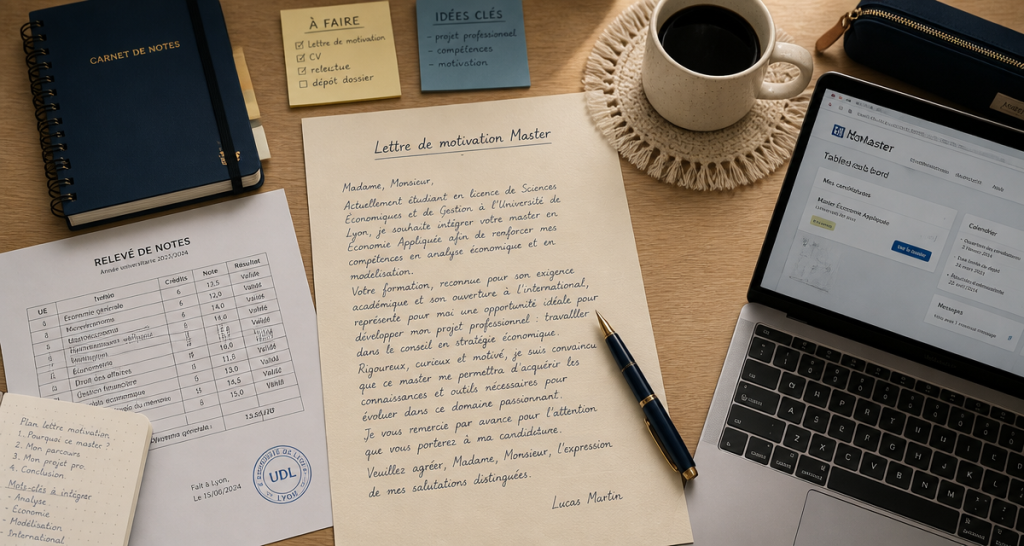 CARNET DE NOTES
À FAIRE
Lettre de motivation
CV
relectue
dépôt dossier
IDÉES CLÉS
- projet professionnel
- compétences
- motivation
Lettre de motivation Master
Madame, Monsieur,
Actuellement étudiant en licence de Sciences
Économiques et de Gestion à l'Université de
Lyon, je souhaite intégrer votre master en
Économie Appliquée afin de renforcer mes
compétences en analyse économique et en
modélisation.
Votre formation, reconnue pour son exigence
académique et son ouverture à l'international,
représente pour mai une opportunité idéale pour
développer mon projet professionnel : travalller
dans le conseil en stratégie économique.
Rigoureux, curieux et motivé, je suis convaincu
que ce master me permettra d'acquérir les
connaissances et outils nécessaires pour
évoluer dans ce domaine passionnant.
Je vous remercie par avance pour l'attention
que vous porterez à ma candidature.
Veuillez agréer, Madame, Monsieur, l'expression
de mes salutations distinguées.
Lucas Martin
RELEVÉ DE NOTES
Année universitaire 2023/2024
UE Crédits Note Résultat
Économie générale 6 13,5 Validé
6 12,0 Validé
14,0 Validé
Validé
Droit des affaires 11,5 Validé
Gestion financière 13,0 Validé
14,5 Validé
15,0
Fait à Lyon,
Le 15/06/2024
UDL
LYON
Plan lettre motivation
1. Pourquoi ce master ?
2. Mon parcours
3. Mon projet pro.
4. Conclusion.
Mots-clés à intégrer
- Analyse
- Économie
- Modélisation
- International
Mes candidatures
Master Économie Appliquée
Calendrier
Messages